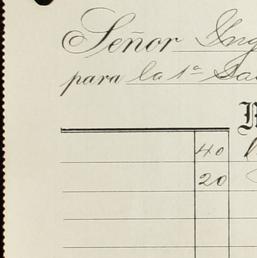 Señor Ing
para la 1ª Sa
40
20